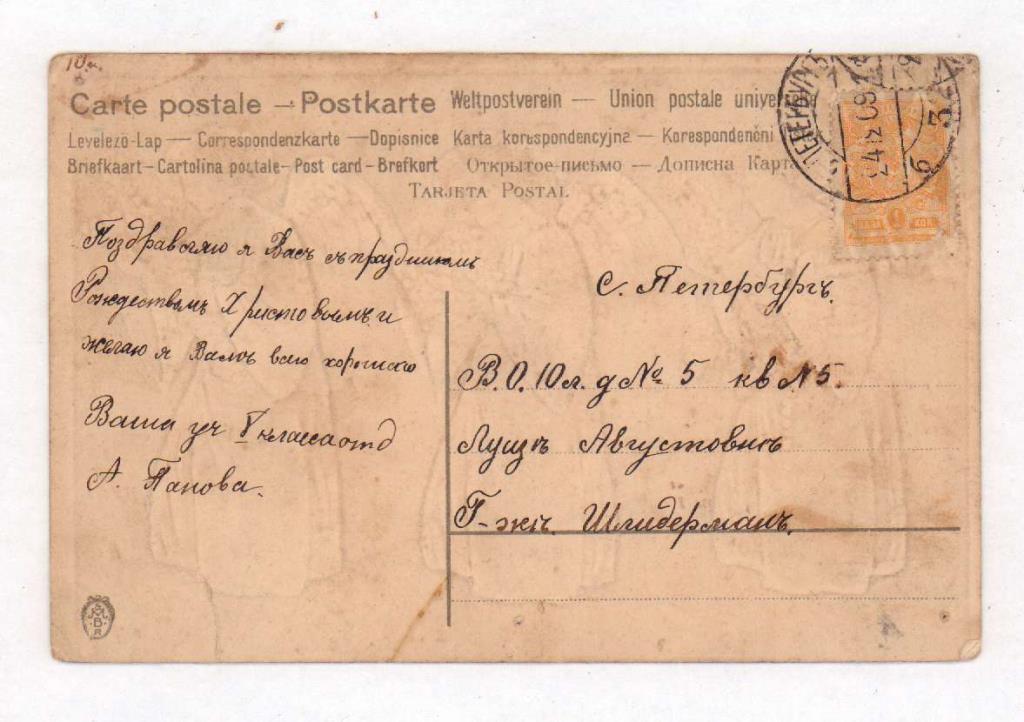 10
Carte postale — Postkarte Weltpostverein — Union postale univer
Levelező-Lap — Correspondenzkarte — Dopisnice Karta korespondencyjna — Korespondenční
Briefkaart — Cartolina postale — Post card — Brefkort Открытое письмо — Дописна Карта
TARJETA POSTAL
Поздравляю я Васъ съ праздникомъ
Рождествомъ Христовымъ и
желаю я Вамъ всего хорошаго
Ваша уч V класса отд
А. Панова.
С. Петербургъ.
В. О. 10 л. д № 5 кв № 5.
Луизѣ Августовнѣ
Г-жѣ Шлидерманъ.
24 12 09
КОП